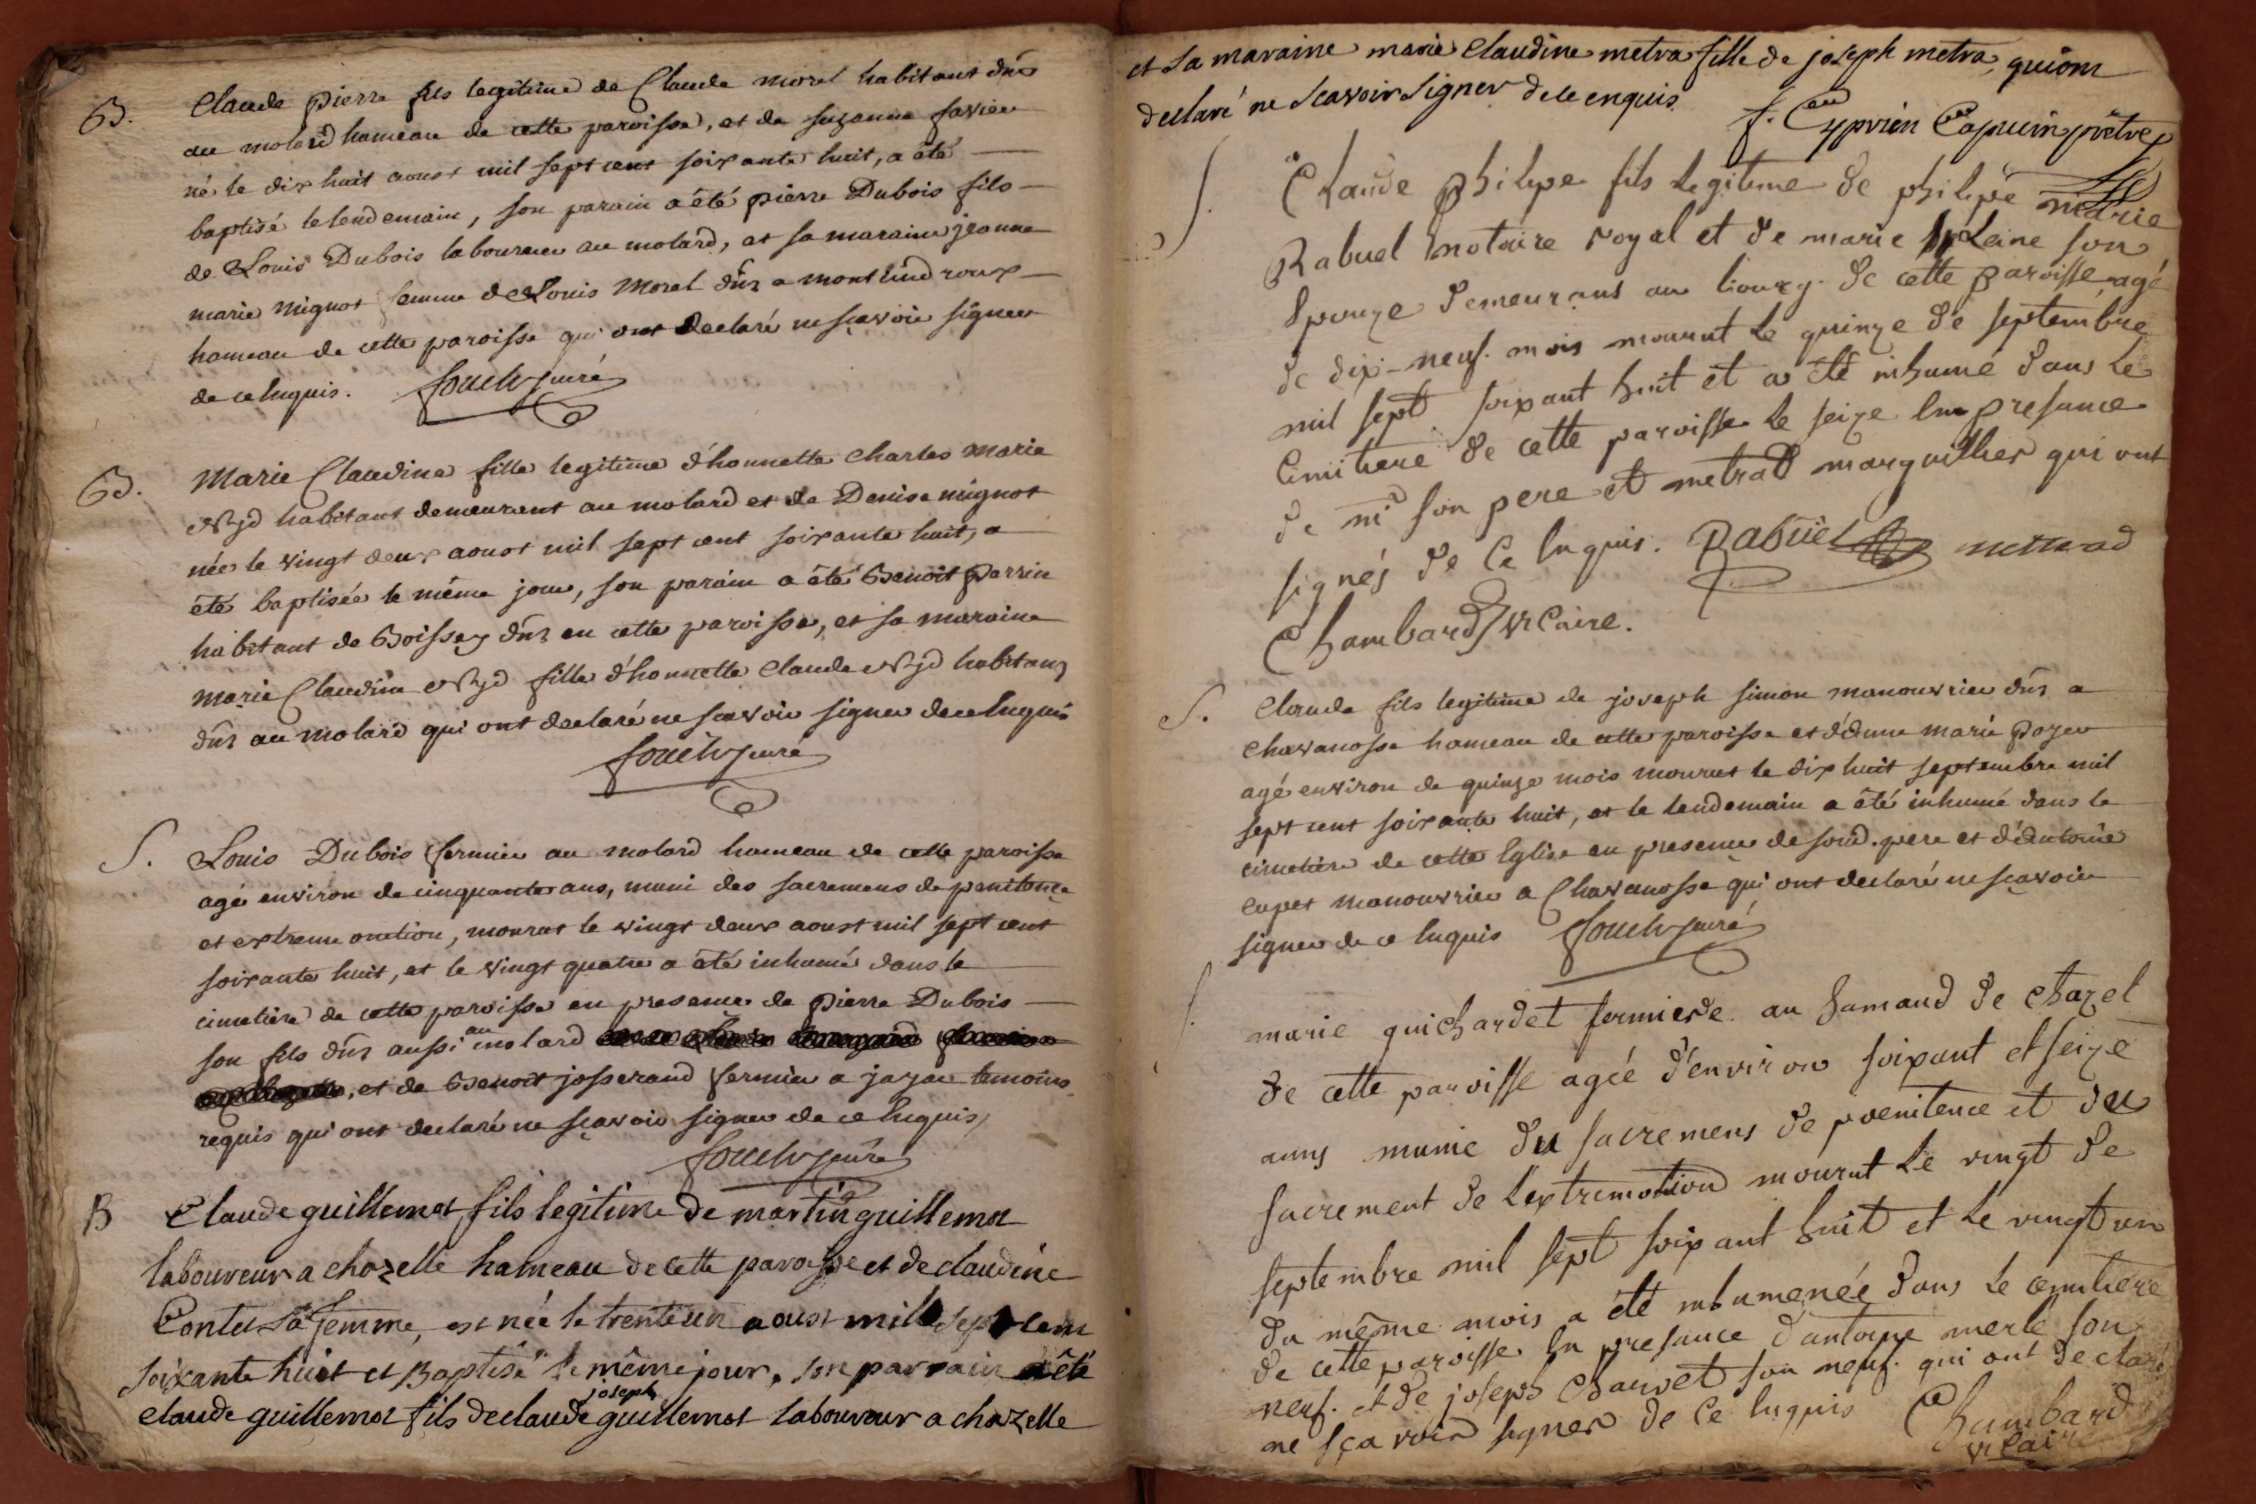 B. Claude pierre fils legitime de Claude morel habitant dmt
au molard hameau de cette paroisse, et de suzanne favier
né le dix huit aoust mil sept cent soixante huit, a été
baptisé le lendemain, son parain a été pierre Dubois fils
de Louis Dubois laboureur au molard, et sa maraine jeanne
marie mignot femme de Louis Morel dmt a
hameau de cette paroisse qui ont declaré ne sçavoir signer
de ce Enquis. curé
B. Marie Claudine fille legitime d'honnette Charles Marie
habitant demeurant au molard et de Denise mignot
née le vingt deux aoust mil sept cent soixante huit, a
été baptisée le même jour, son parain a été Benoit perrin
habitant de Boissey dmt en cette paroisse, et sa maraine
Marie Claudine fille d'honnette Claude habitant
dmt au molard qui ont declaré ne scavoir signer de ce Enquis
curé
S. Louis Dubois fermier au molard hameau de cette paroisse
agé environ de cinquante ans, muni des sacremens de penitence
et extreme onction, mourut le vingt deux aoust mil sept cent
soixante huit, et le vingt quatre a été inhumé dans le
cimetière de cette paroisse en presence de pierre Dubois
son fils dmt aussi au molard
et de Benoit josserand fermier a jayac temoins
requis qui ont declaré ne sçavoir signer de ce Enquis,
curé
B Claude guillemot, fils legitime de martin guillemot
laboureur a chazelle hameau de cette paroisse et de claudine
Contet sa femme, est née le trente un aoust mille sept cent
soixante huit et Baptisé le même jour, son parrain a été
claude guillemot fils de claude joseph guillemot laboureur a chazelle
et sa maraine marie Claudine metra fille de joseph metra, qui ont
declaré ne scavoir signer de ce enquis
f. Cyprien Capucin prêtre
S. Claude philipe fils legitime de philipe marie
Rabuel notaire royal et de marie son
Epouze demeurans au bourg de cette paroisse agé
de dix-neuf mois mourut le quinze de septembre
mil sept soixant huit et a été inhumé dans le
Cimitiere de cette paroisse le seize En presance
de mr son pere et metrat marguillier qui ont
signés de Ce Enquis. Rabuel metrad
Chambard vicaire.
S. Claude fils legitime de joseph simon manouvrier dmt a
chavanosse hameau de cette paroisse et d'Anne marie poyer
agé environ de quinze mois mourut le dix huit septembre mil
sept cent soixante huit, et le lendemain a été inhumé dans le
cimetière de cette Eglise en presence de soud. pere et d'Antoine
cupet manouvrier a Chavanosse qui ont declaré ne sçavoir
signer de ce Enquis curé
S. marie guichardet fermiere au hamaud de chazel
de cette paroisse agée d'environ soixant et seize
anns munie du sacremens de poenitence et du
sacrement de L'extremotiond mourut Le vingt de
septembre mil sept soixant huit et Le vingt un
du même mois a été inhumenée dans Le cemitiere
de cette paroisse En presance d'antoine merle son
neuf. et de joseph Chanvet son neuf. qui ont declaré
ne sçavoir signer de Ce Enquis Chambard
vicaire